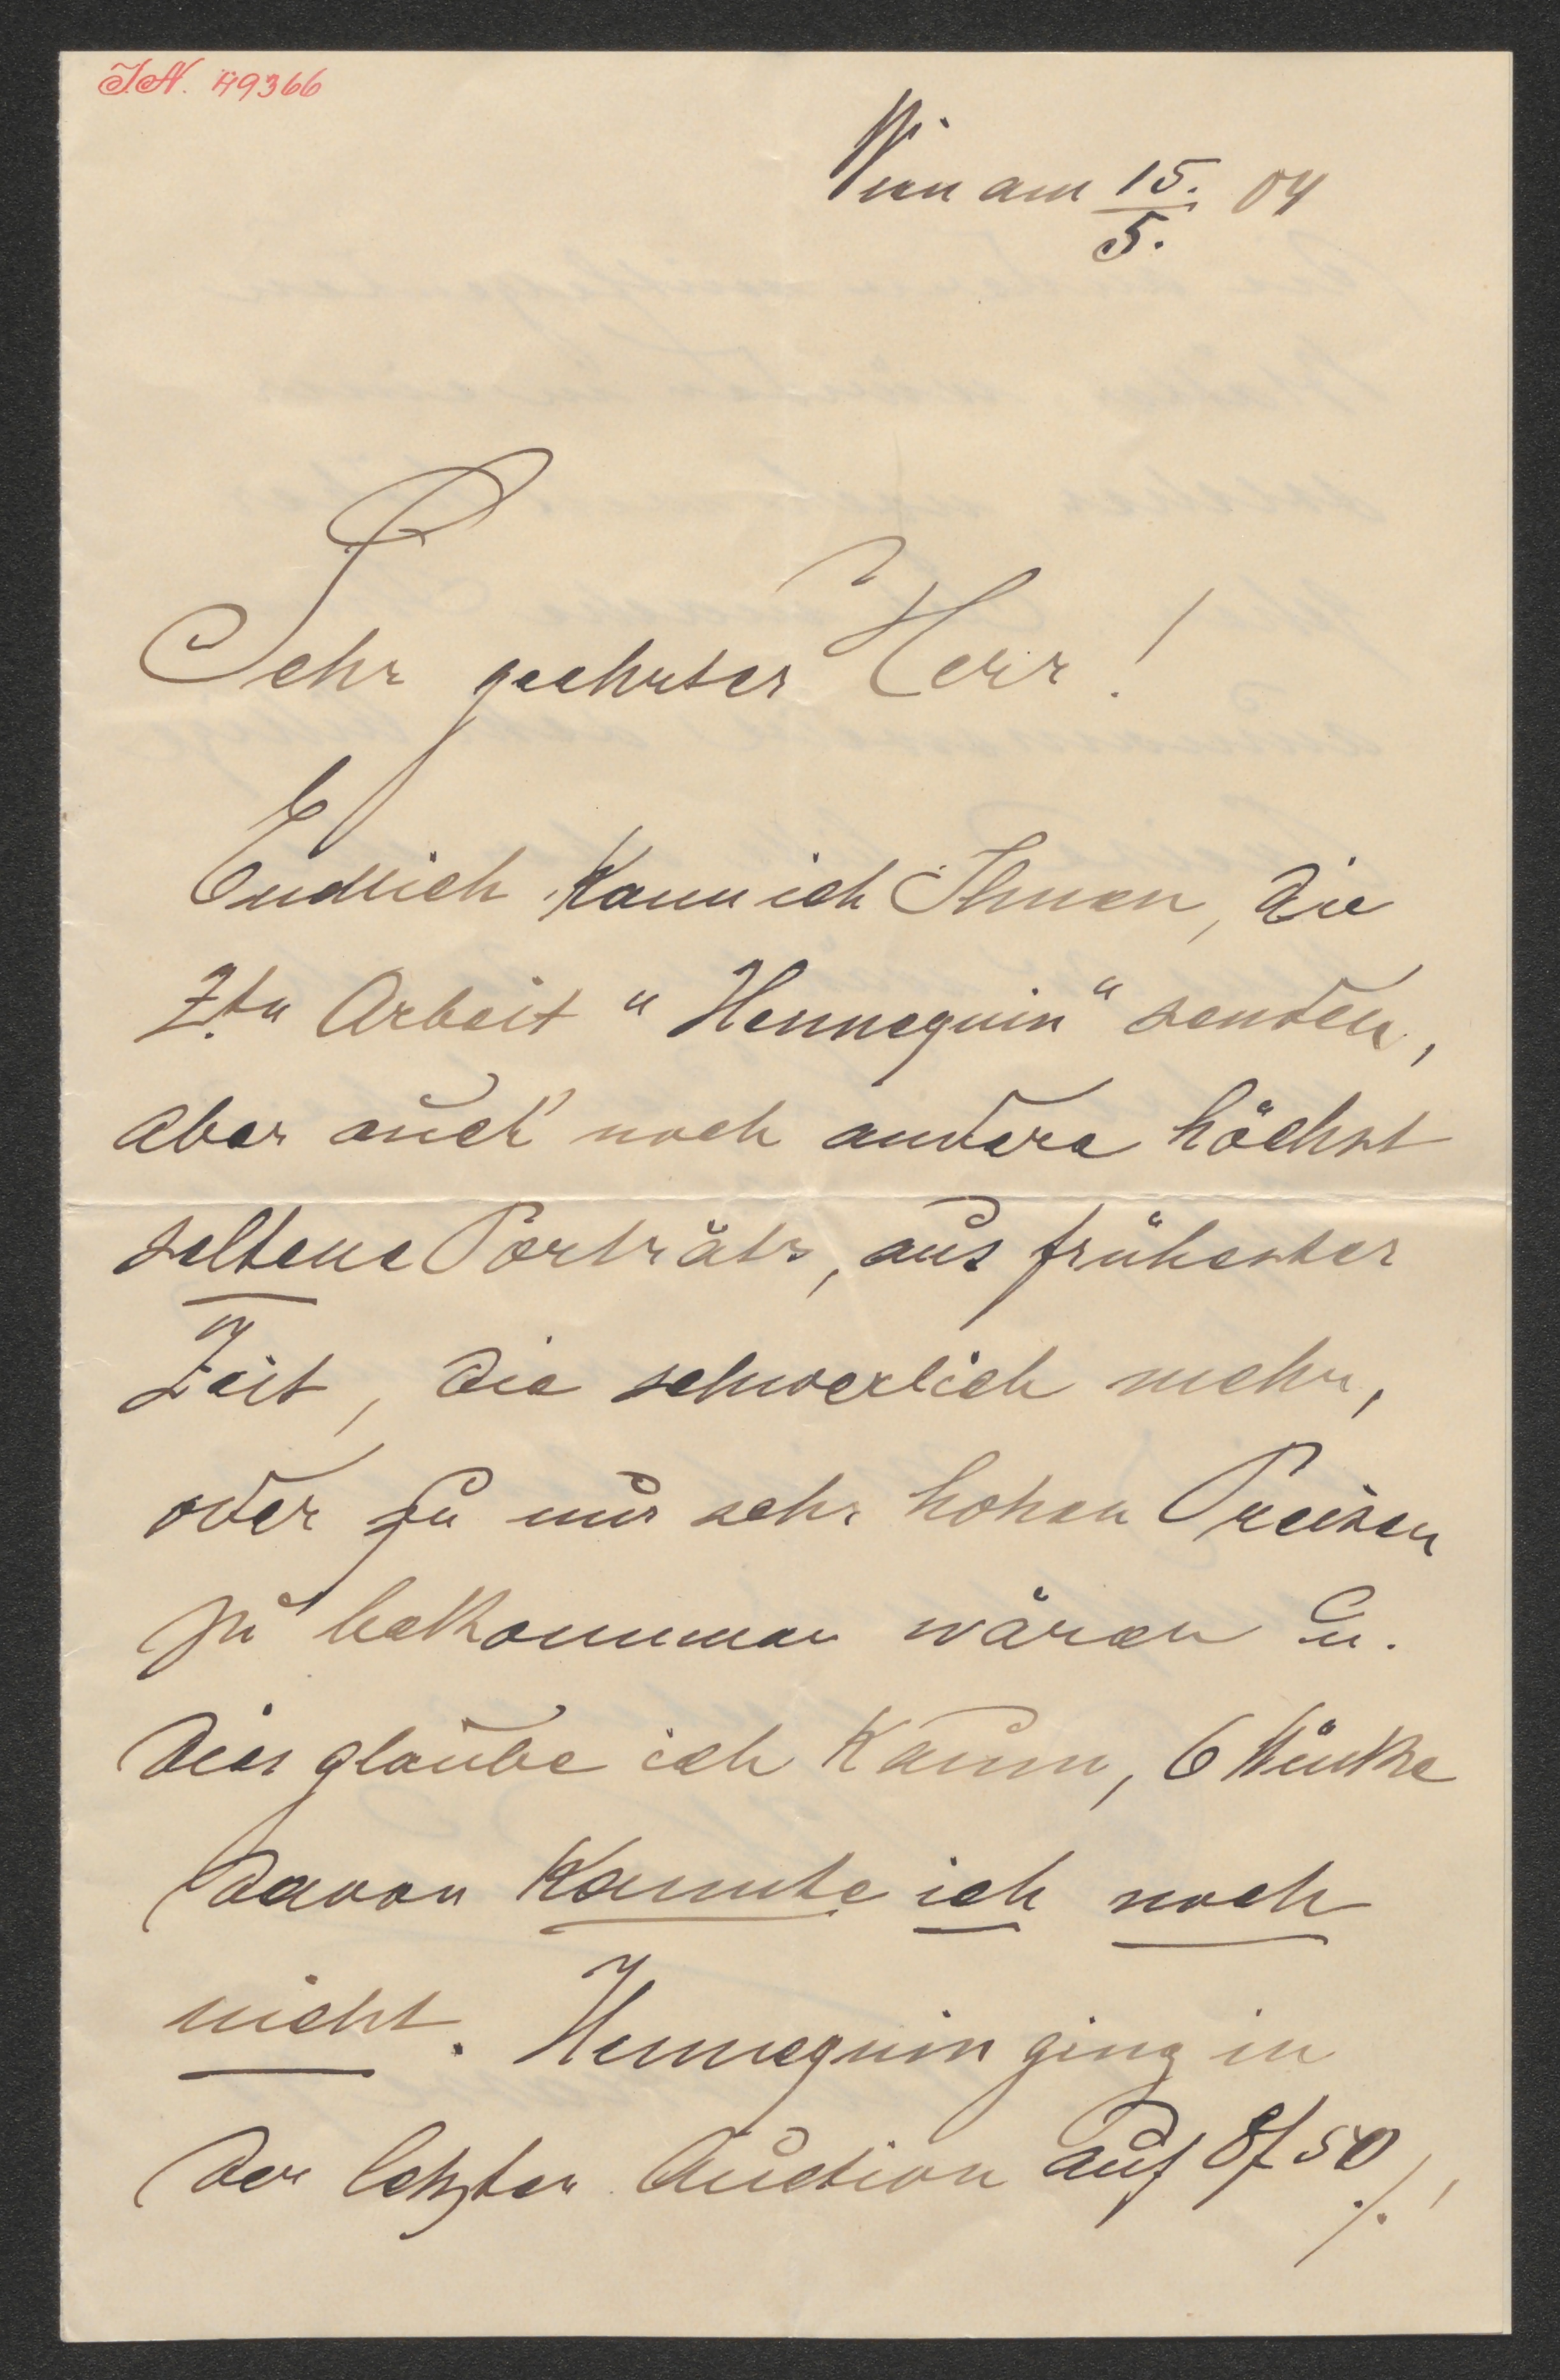 I.N. 49366
Wien am 15./5. 04
Sehr geehrter Herr!
Endlich kann ich Ihnen, die
2.te Arbeit "Hennequin" senden,
aber auch noch andere höchst
seltene Porträts, aus frühester
Zeit, die schwerlich mehr,
oder zu nur sehr hohen Preisen
zu bekommen wären u.
dies glaube ich kaum, 6 Stücke
davon kannte ich noch
nicht. Hennequin ging in
der letzten Auction auf 8f 50
./.